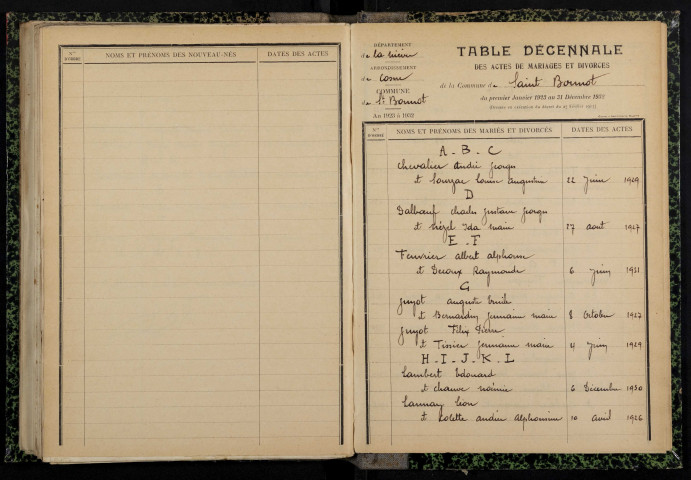 N° D'ORDRE
NOMS ET PRÉNOMS DES NOUVEAU-NÉS
DATES DES ACTES
DÉPARTEMENT
de la Nièvre
ARRONDISSEMENT
de Cosne
COMMUNE
de St Bonnot
An 1923 à 1932
TABLE DÉCENNALE
DES ACTES DE MARIAGES ET DIVORCES
de la Commune de Saint Bonnot
du premier Janvier 1923 au 31 Décembre 1932
N° D'ORDRE
NOMS ET PRÉNOMS DES MARIÉS ET DIVORCÉS
DATES DES ACTES
A - B - C
Chevalier andré georges
et Louise augustine 22 Juin 1929
D
Dalbœuf charles gustave georges
et Ida marie 27 aout 1927
E - F
Fevrier albert alphonse
et Decoux Raymonde 6 Juin 1931
G
guyot auguste Emile
et Bernardin germaine marie 8 Octobre 1927
guyot Félix Pierre
et Tissier germaine marie 4 Juin 1929
H - I - J - K - L
Lambert Edouard
et chauve noémie 6 Décembre 1930
Launay Léon
et Colette andrée Alphonsine 10 avril 1926